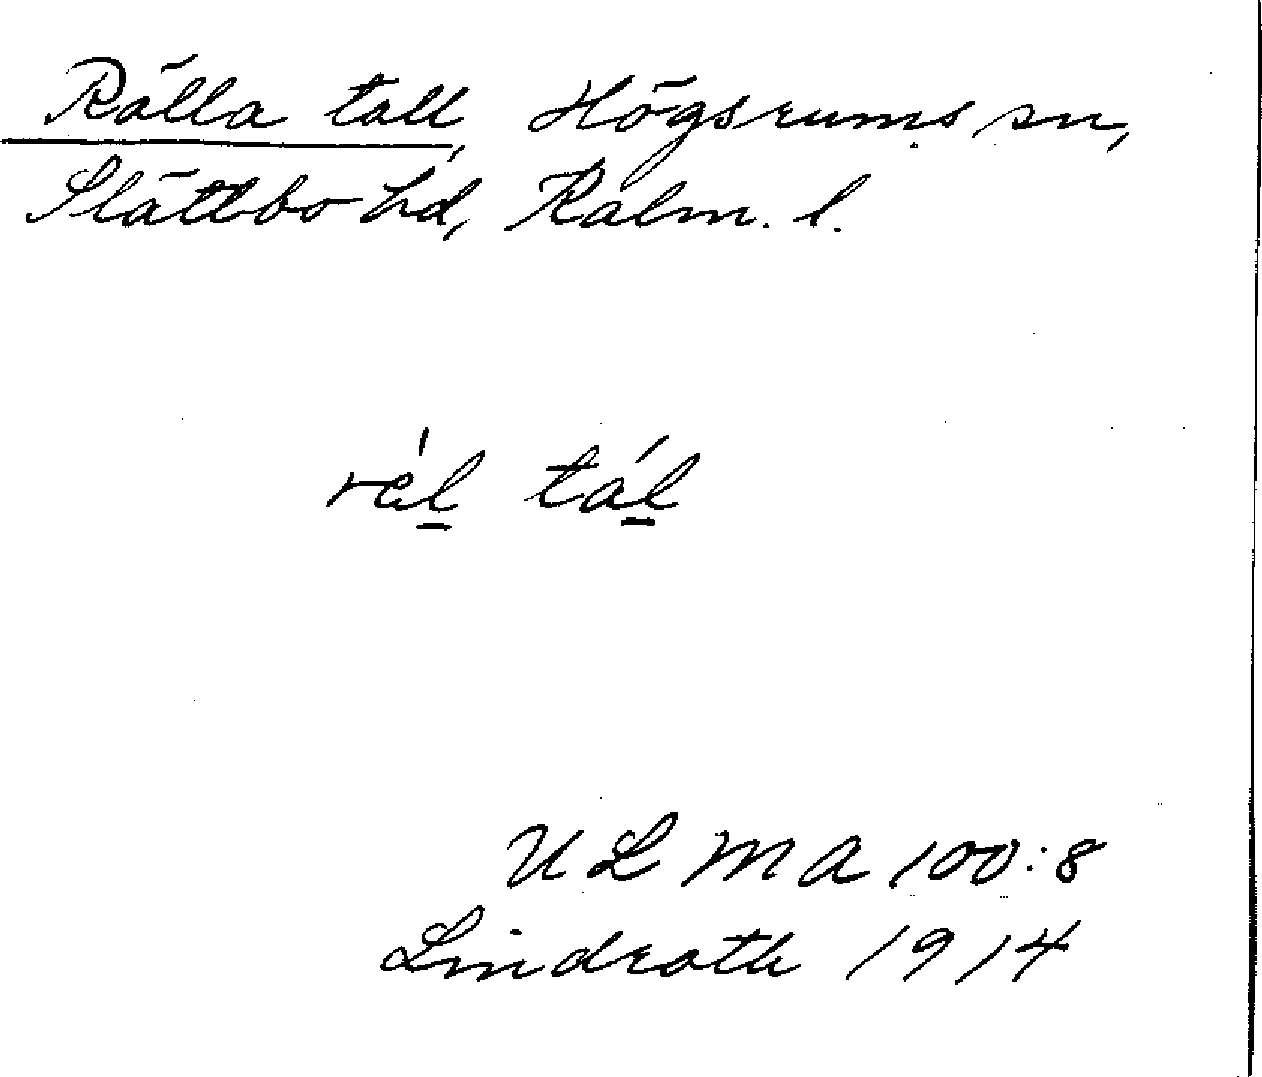 Rälla tall, Högsrums sn,
Slättbo hd, Kalm. l.
rál tál
ULMA 100:8
Lindroth 1914